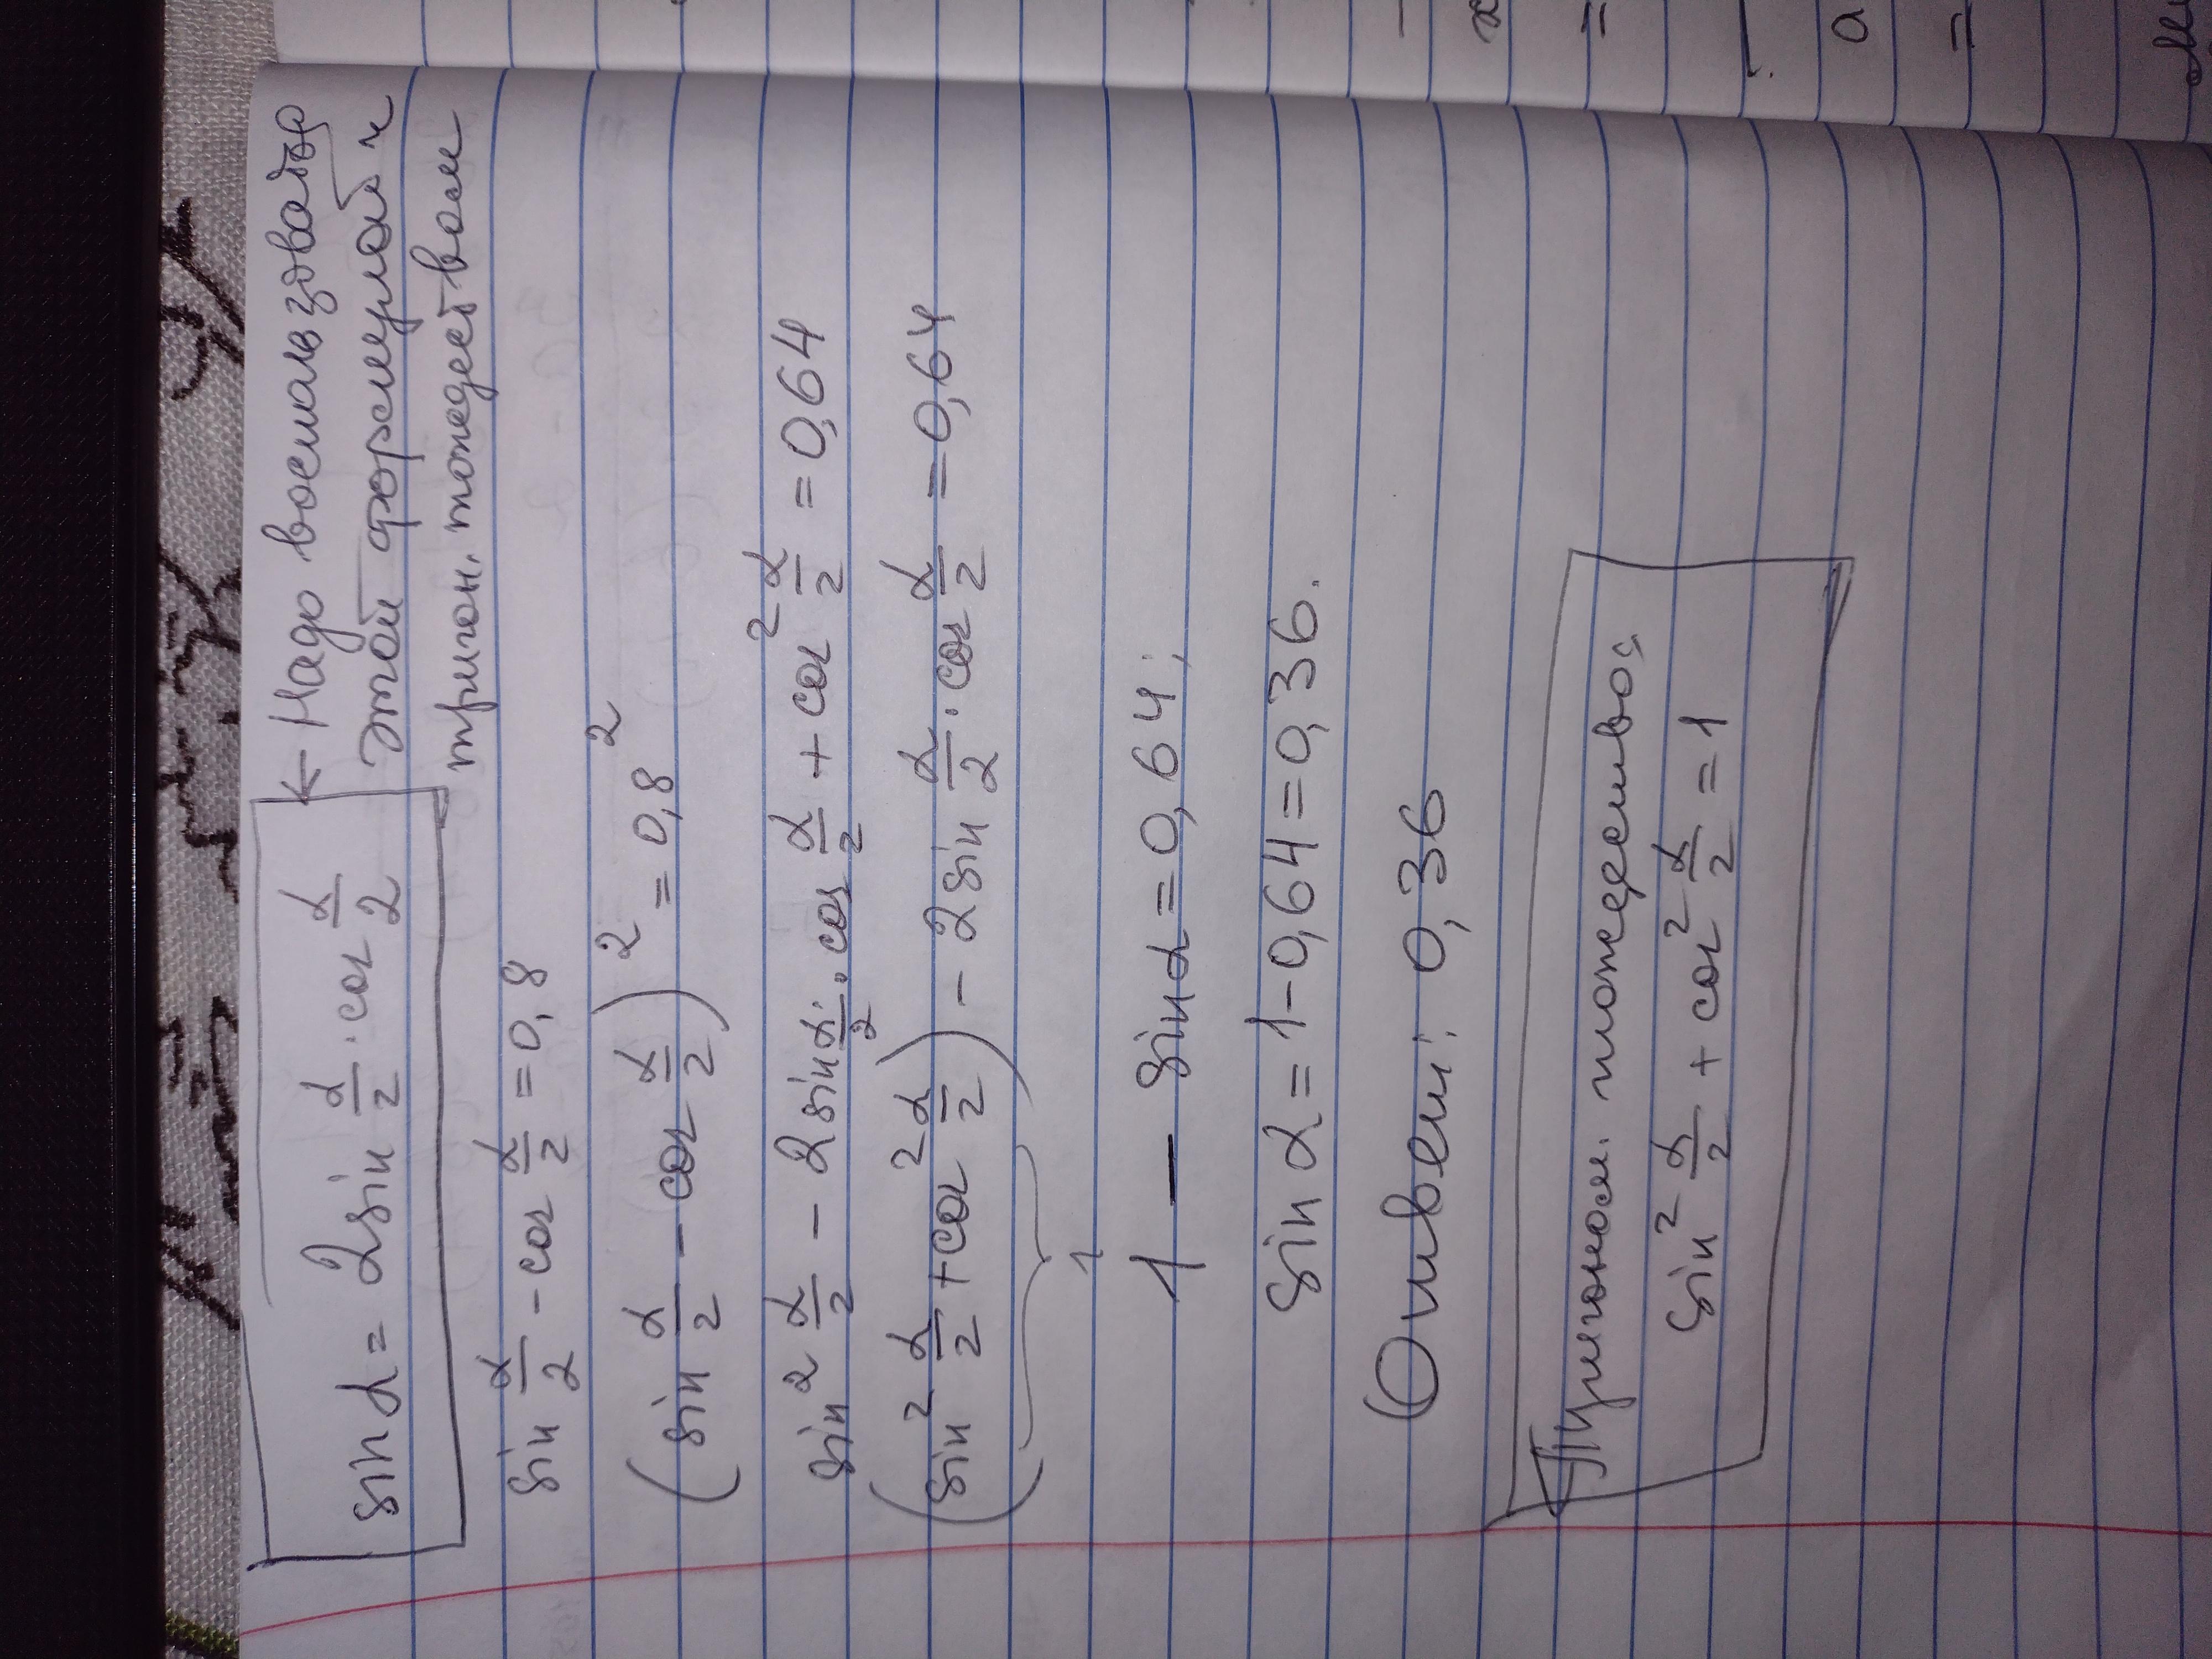 sin α = 2 sin α/2 · cos α/2 ← Надо воспользоваться
этой формулой и
тригон. тождеством
sin α/2 - cos α/2 = 0,8
(sin α/2 - cos α/2)² = 0,8²
sin² α/2 - 2 sin α/2 · cos α/2 + cos² α/2 = 0,64
(sin² α/2 + cos² α/2) - 2 sin α/2 · cos α/2 = 0,64
1
1 - sin α = 0,64;
sin α = 1 - 0,64 = 0,36.
Ответ: 0,36
Тригоном. тождество:
sin² α/2 + cos² α/2 = 1
-
x
=
a
=